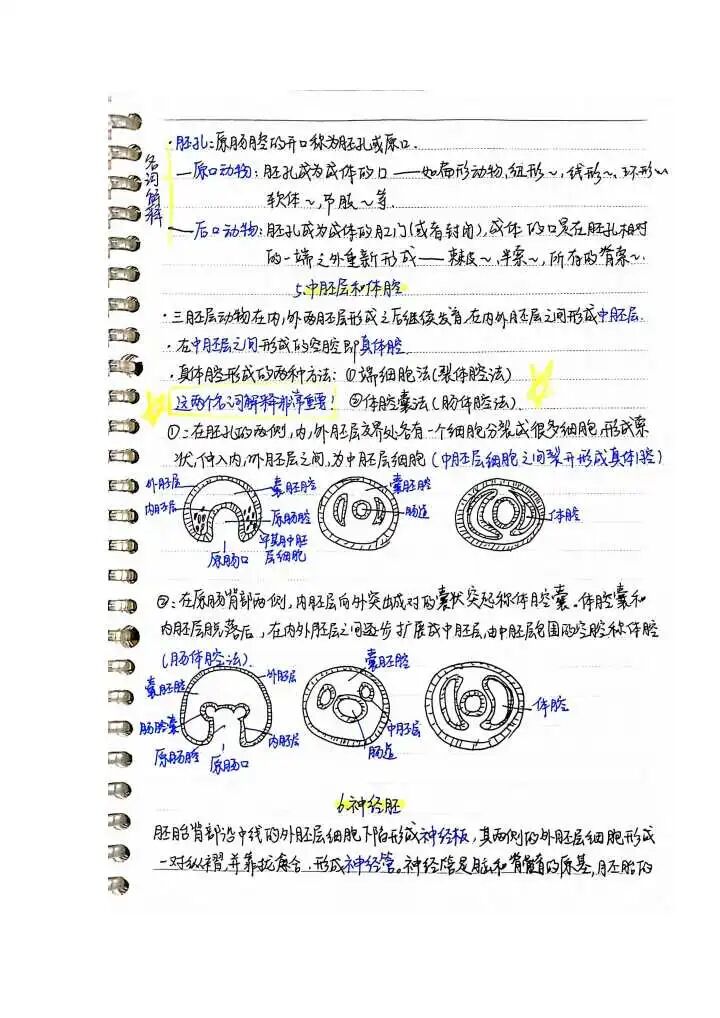 ·胚孔：原肠腔的开口称为胚孔或原口.
名词解释
—原口动物：胚孔成为成体的口——如扁形动物、纽形～，线形～、环形～
软体～，节肢～等.
—后口动物：胚孔成为成体的肛门(或者封闭)，成体的口是在胚孔相对
的一端之外重新形成——棘皮～、半索～，所有的脊索～.
5.中胚层和体腔
·三胚层动物在内,外两胚层形成之后继续发育,在内外胚层之间形成中胚层.
·在中胚层之间形成的空腔即真体腔.
·真体腔形成的两种方法：①端细胞法(裂体腔法)
这两个名词解释都非常重要! ②体腔囊法(肠体腔法).
①：在胚孔的两侧，内,外胚层交界处各有一个细胞分裂成很多细胞,形成索
状,伸入内,外胚层之间,为中胚层细胞(中胚层细胞之间裂开形成真体腔)
外胚层 囊胚腔 囊胚腔
内胚层 原肠腔 肠道 体腔
早期中胚
原肠口 层细胞
②：在原肠背部两侧，内胚层向外突出成对的囊状突起称体腔囊。体腔囊和
内胚层脱落后，在内外胚层之间逐步扩展成中胚层,由中胚层包围的空腔称体腔
(肠体腔法).
囊胚腔 外胚层 囊胚腔
肠腔囊 中胚层 体腔
原肠腔 原肠口 内胚层 肠道
6.神经胚
胚胎背部沿中线的外胚层细胞下陷形成神经板，其两侧的外胚层细胞形成
一对纵褶,并靠拢愈合,形成神经管。神经管是脑和脊髓的原基,胚胎的